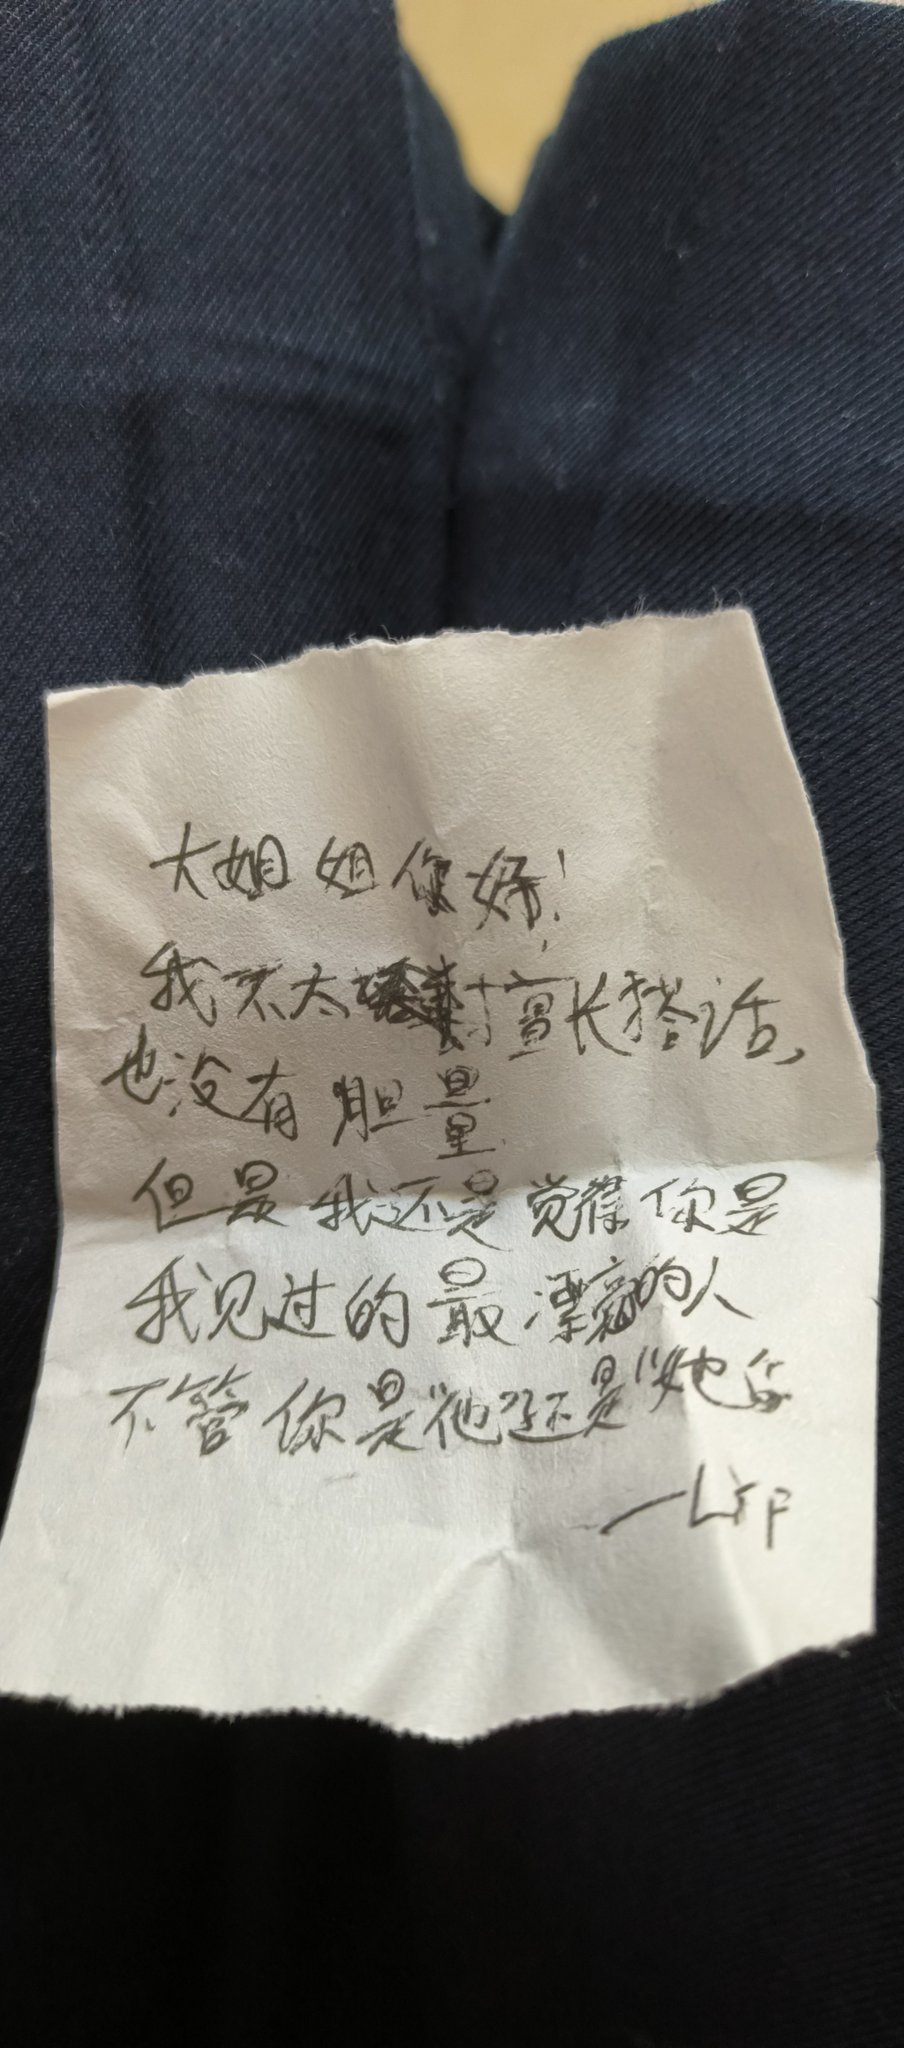 大姐姐你好！
我不太擅长搭话，
也没有胆量
但是我还是觉得你是
我见过的最漂亮的人
不管你是“他”还是“她”